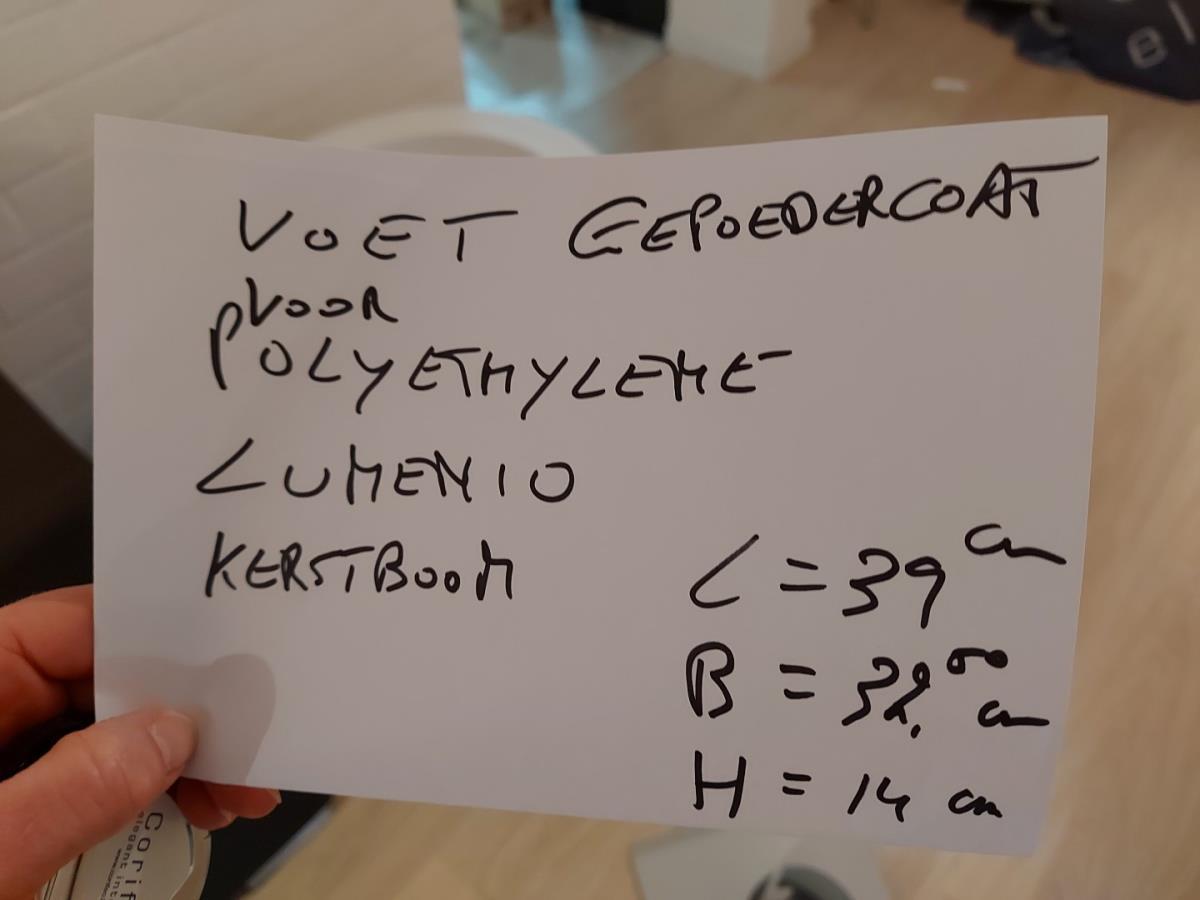 VOET GEPOEDERCOAT
VOOR
POLYETHYLENE
LUMENIO
KERSTBOOM
L = 39 cm
B = 38.00 cm
H = 14 cm
Corif
elegant int
B